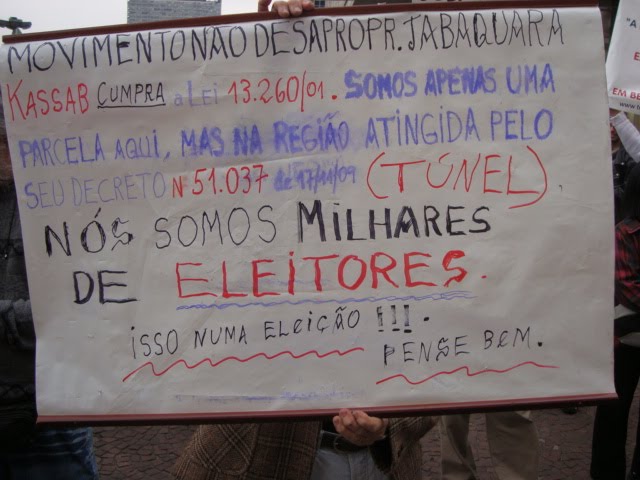 MOVIMENTO NÃO DESAPROPR. JABAQUARA
KASSAB CUMPRA a Lei 13.260/01. SOMOS APENAS UMA
PARCELA AQUI, MAS NA REGIÃO ATINGIDA PELO
SEU DECRETO Nº 51.037 de 17/11/09 (TÚNEL).
NÓS SOMOS MILHARES
DE ELEITORES.
ISSO NUMA ELEIÇÃO !!!.
PENSE BEM.
"A
E
EM BE
www.t